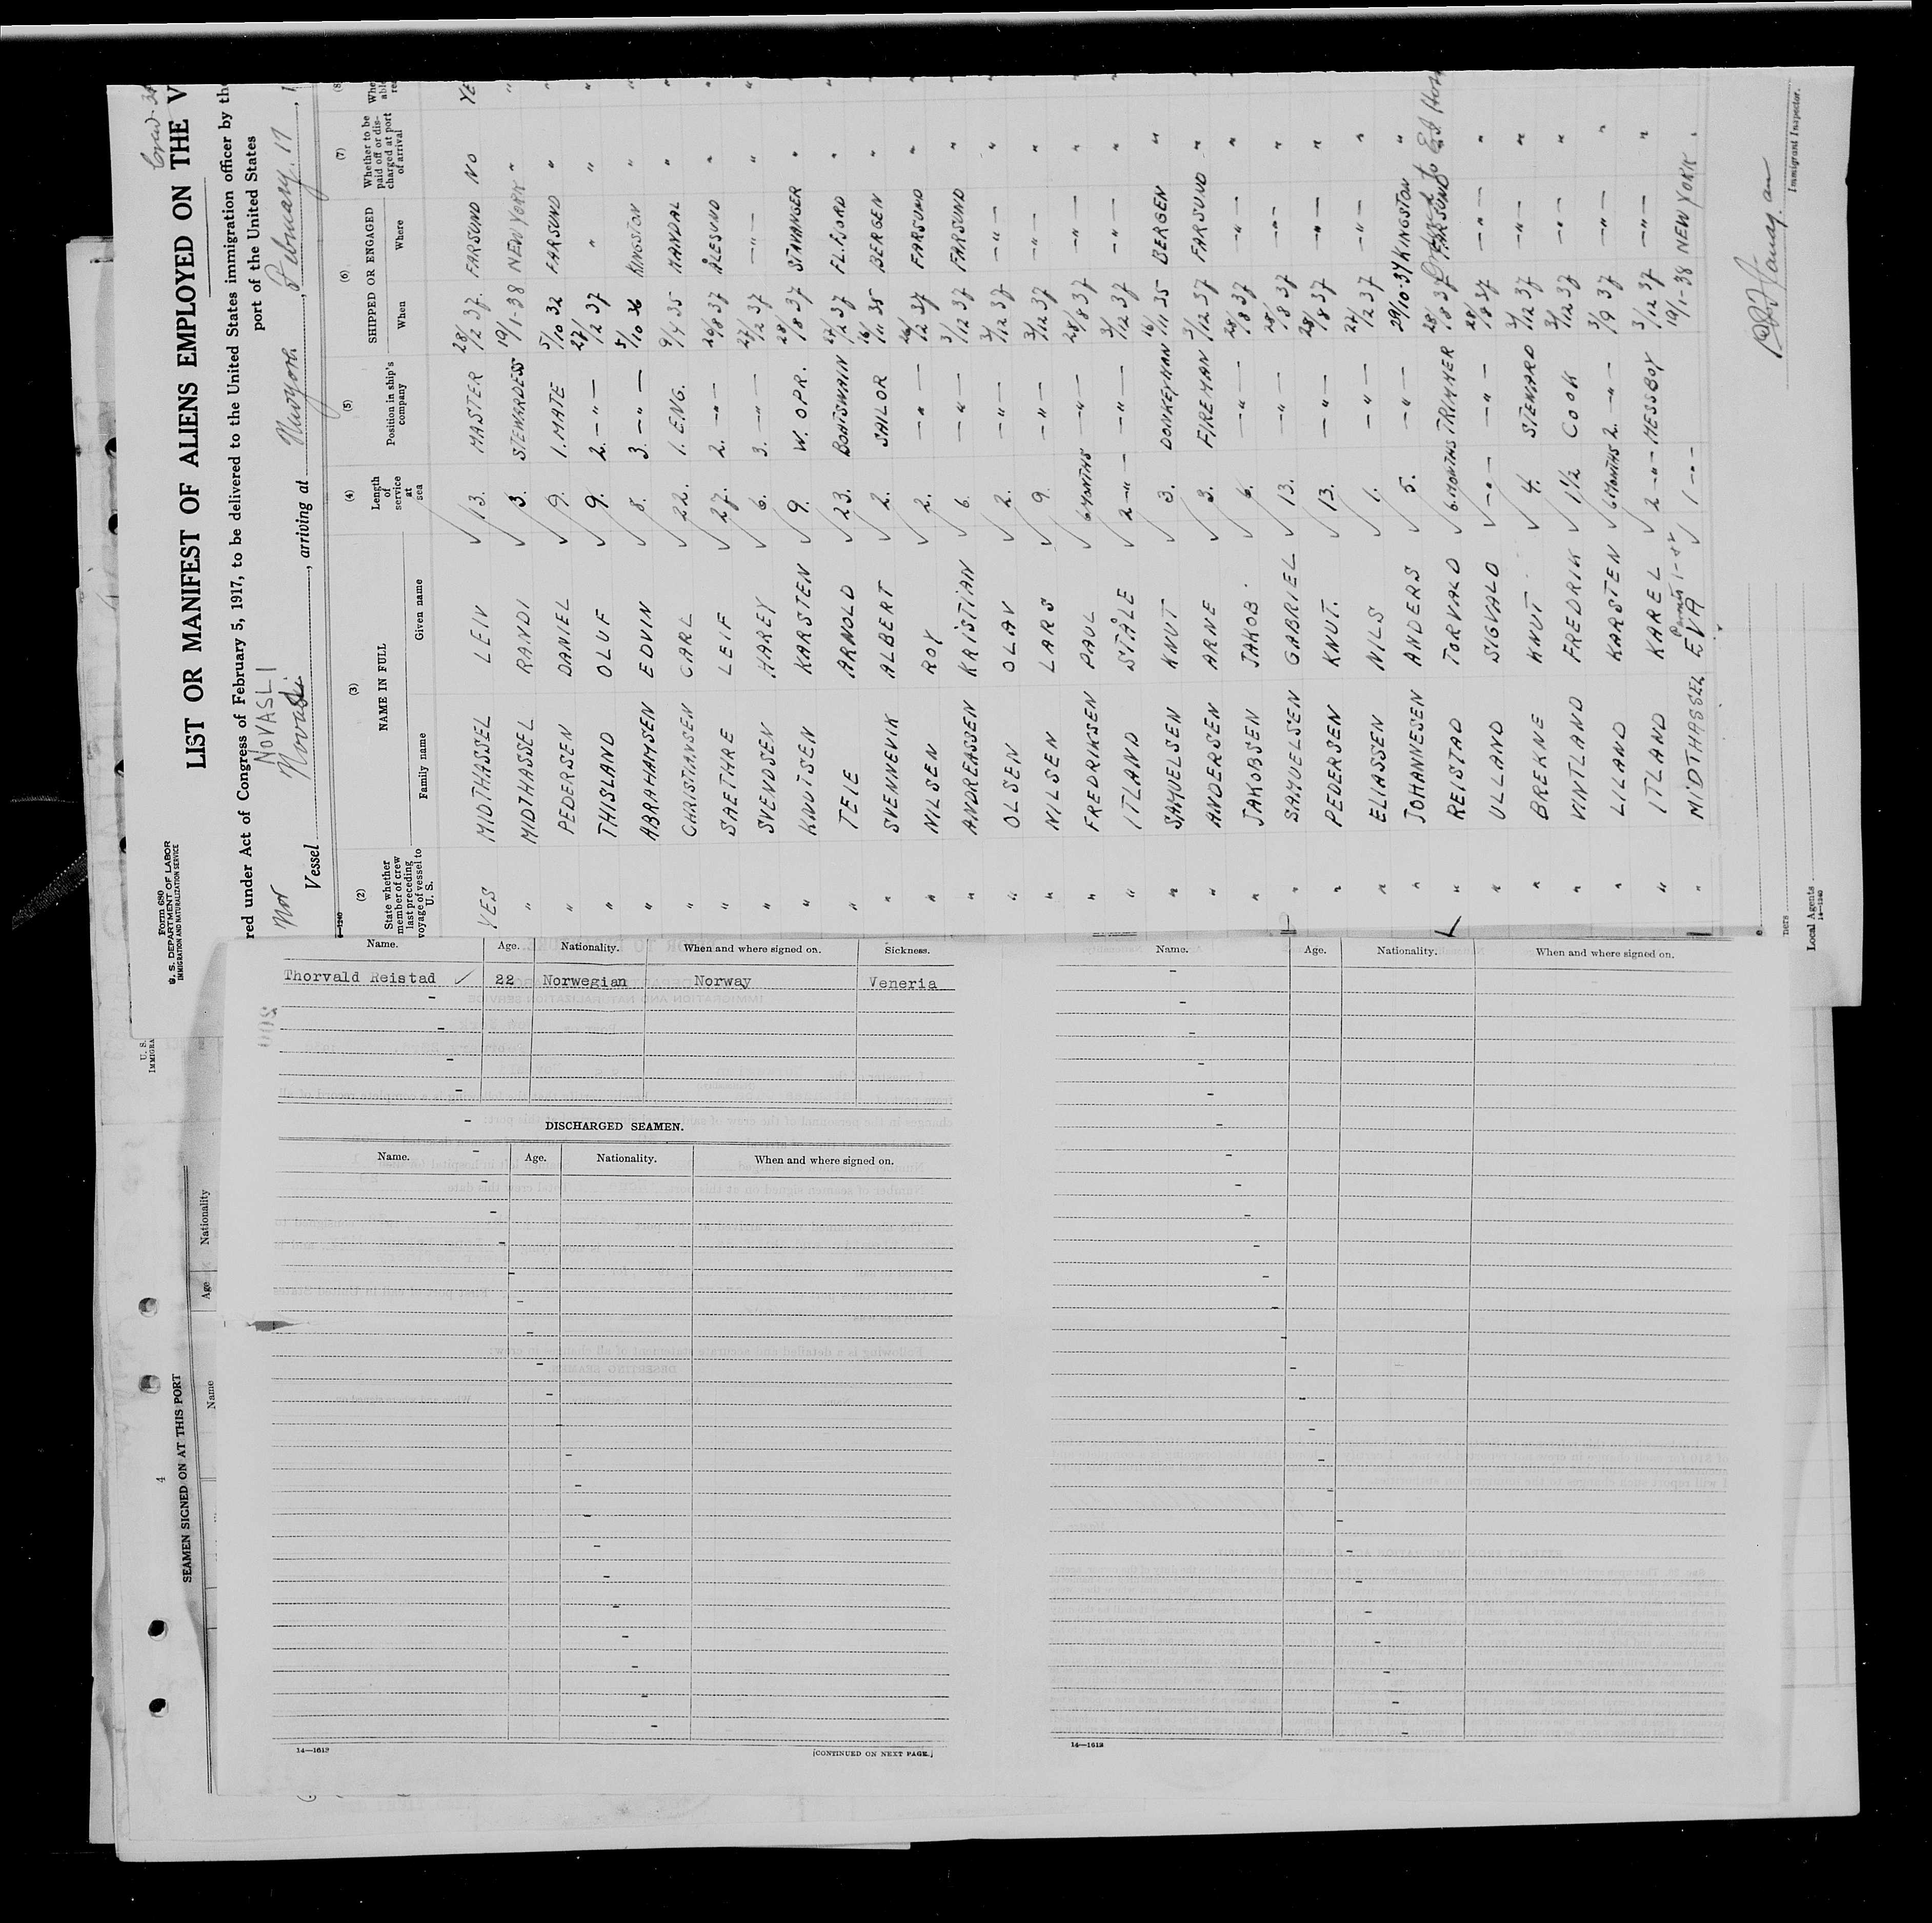 Crew - 31
LIST OR MANIFEST OF ALIENS EMPLOYED ON THE V
Form 680
U. S. DEPARTMENT OF LABOR
IMMIGRATION AND NATURALIZATION SERVICE
red under Act of Congress of February 5, 1917, to be delivered to the United States immigration officer by th
port of the United States
NOVASLI
Nor Vessel Novasli , arriving at Newyork , February. 17 , 1
(2) (3) (4) (5) (6) (7) (8)
State whether member of crew last preceding voyage of vessel to U. S. NAME IN FULL Length of service at sea Position in ship's company SHIPPED OR ENGAGED Whether to be paid off or discharged at port of arrival
Family name Given name When Where
YES MIDTHASSEL LEIV ✓ 13. MASTER 28/12 37. FARSUND NO YE
" MIDTHASSEL RANDI ✓ 3. STEWARDESS 19/1-38 NEW YORK " "
" PEDERSEN DANIEL ✓ 9. 1. MATE 5/10 32 FARSUND " "
" THISLAND OLUF ✓ 9. 2. — " — 27/12 37 " " "
" ABRAHAMSEN EDVIN ✓ 8. 3. — " — 5/10 36 KINGSTON " "
" CHRISTIANSEN CARL ✓ 22. 1. ENG. 9/4 35 MANDAL " "
" SAETHRE LEIF ✓ 27. 2. — " — 26/8 37 ÅLESUND " "
" SVENDSEN HAREY ✓ 6. 3. — " — 27/12 37 — " — " "
" KNUTSEN KARSTEN ✓ 9. W. OPR. 28/18 37 STAVANGER " "
" TEIE ARNOLD ✓ 23. BOATSWAIN 27/12 37 FL.FJORD " "
" SVENNEVIK ALBERT ✓ 2. SAILOR 16/11 35 BERGEN " "
" NILSEN ROY ✓ 2. — " — 26/12 37 FARSUND " "
" ANDREASSEN KRISTIAN ✓ 6. — " — 3/12 37 FARSUND " "
" OLSEN OLAV ✓ 2. — " — 3/12 37 — " — " "
" NILSEN LARS ✓ 9. — " — 3/12 37 — " — " "
" FREDRIKSEN PAUL ✓ 6 MONTHS — " — 28/8 37 — " — " "
" ITLAND STÅLE ✓ 2 — " — — " — 3/12 37 — " — " "
" SAMUELSEN KNUT ✓ 3. DONKEYMAN 16/11 35 BERGEN " "
" ANDERSEN ARNE ✓ 3. FIREMAN 3/12 37 FARSUND " "
" JAKOBSEN JAKOB. ✓ 6. — " — 28/8 37 — " — "
" SAMUELSEN GABRIEL ✓ 13. — " — 28/8 37 — " — "
" PEDERSEN KNUT. ✓ 13. — " — 28/8 37 — " — "
" ELIASSEN NILS ✓ 1. — " — 27/12 37 — " — "
" JOHANNESEN ANDERS ✓ 5. — " — 29/10-37 KINGSTON "
" REISTAD TORVALD ✓ 6 MONTHS TRIMMER 28/8 37 FARSUND Ordered to
" ULLAND SIGVALD ✓ — " — — " — 28/8 37 — " — "
" BREKNE KNUT. ✓ 4. STEWARD 3/12 37 — " — "
" VINTLAND FREDRIK ✓ 1½ COOK 3/12 37 — " — "
" LILAND KARSTEN ✓ 6 MONTHS 2. — " — 3/9 37 — " — "
" ITLAND KAREL ✓ 2 — " — MESSBOY 3/12 37 — " — "
" MIDTHASSEL EVA ✓ 1 — " — 19/1-38 NEW YORK "
Immigrant Inspector.
Local Agents
14—1240
Name. Age. Nationality. When and where signed on. Sickness.
Thorvald Reistad ✓ 22 Norwegian Norway Veneria
DISCHARGED SEAMEN.
Name. Age. Nationality. When and where signed on.
14—1613
[CONTINUED ON NEXT PAGE.]
Name. Age. Nationality. When and where signed on.
14—1613
U. S.
IMMIGRA
4
SEAMEN SIGNED ON AT THIS PORT
Name Age Nationality